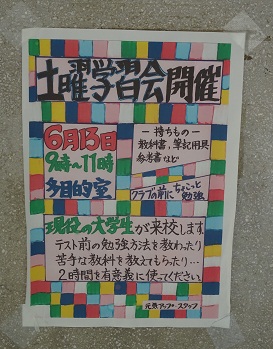 土曜学習会開催
6月13日
9時～11時
多目的室
－持ちもの－
教科書、筆記用具
参考書など
クラブの前にちょこっと
勉強
現役の大学生が来校します。
テスト前の勉強方法を教わったり
苦手な教科を教えてもらったり…
2時間を有意義に使ってください。
元気アップ・スタッフ